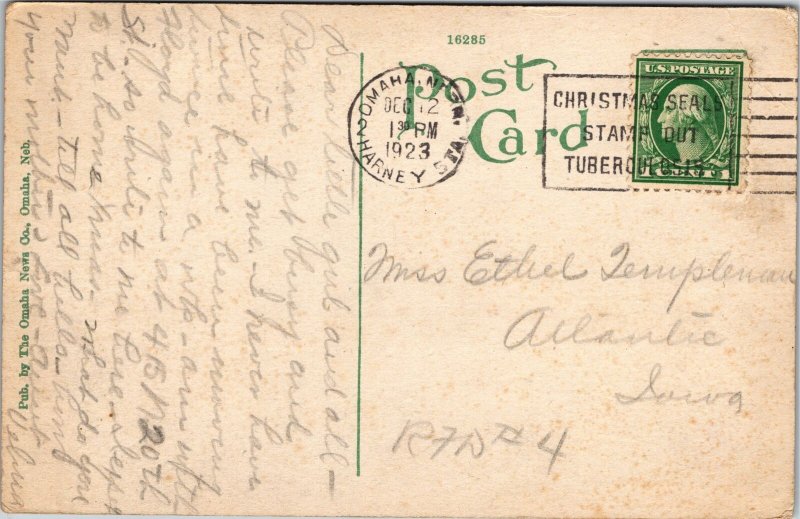 16285
Post
Card
OMAHA, NEBR.
DEC 12
1 30 PM
1923
HARNEY STA.
CHRISTMAS SEALS
STAMP OUT
TUBERCULOSIS
U.S. POSTAGE
Miss Ethel Templeman
Atlantic
Iowa
RFD # 4
Dear little girl and all—
Please get busy and
write to me— I never have
time have been moving
twice in a wk— am with
Floyd again at 415 N 20th
St. so write to me here.
to be home Xmas— what do you
want— tell all hello—
your
Pub. by The Omaha News Co., Omaha, Neb.